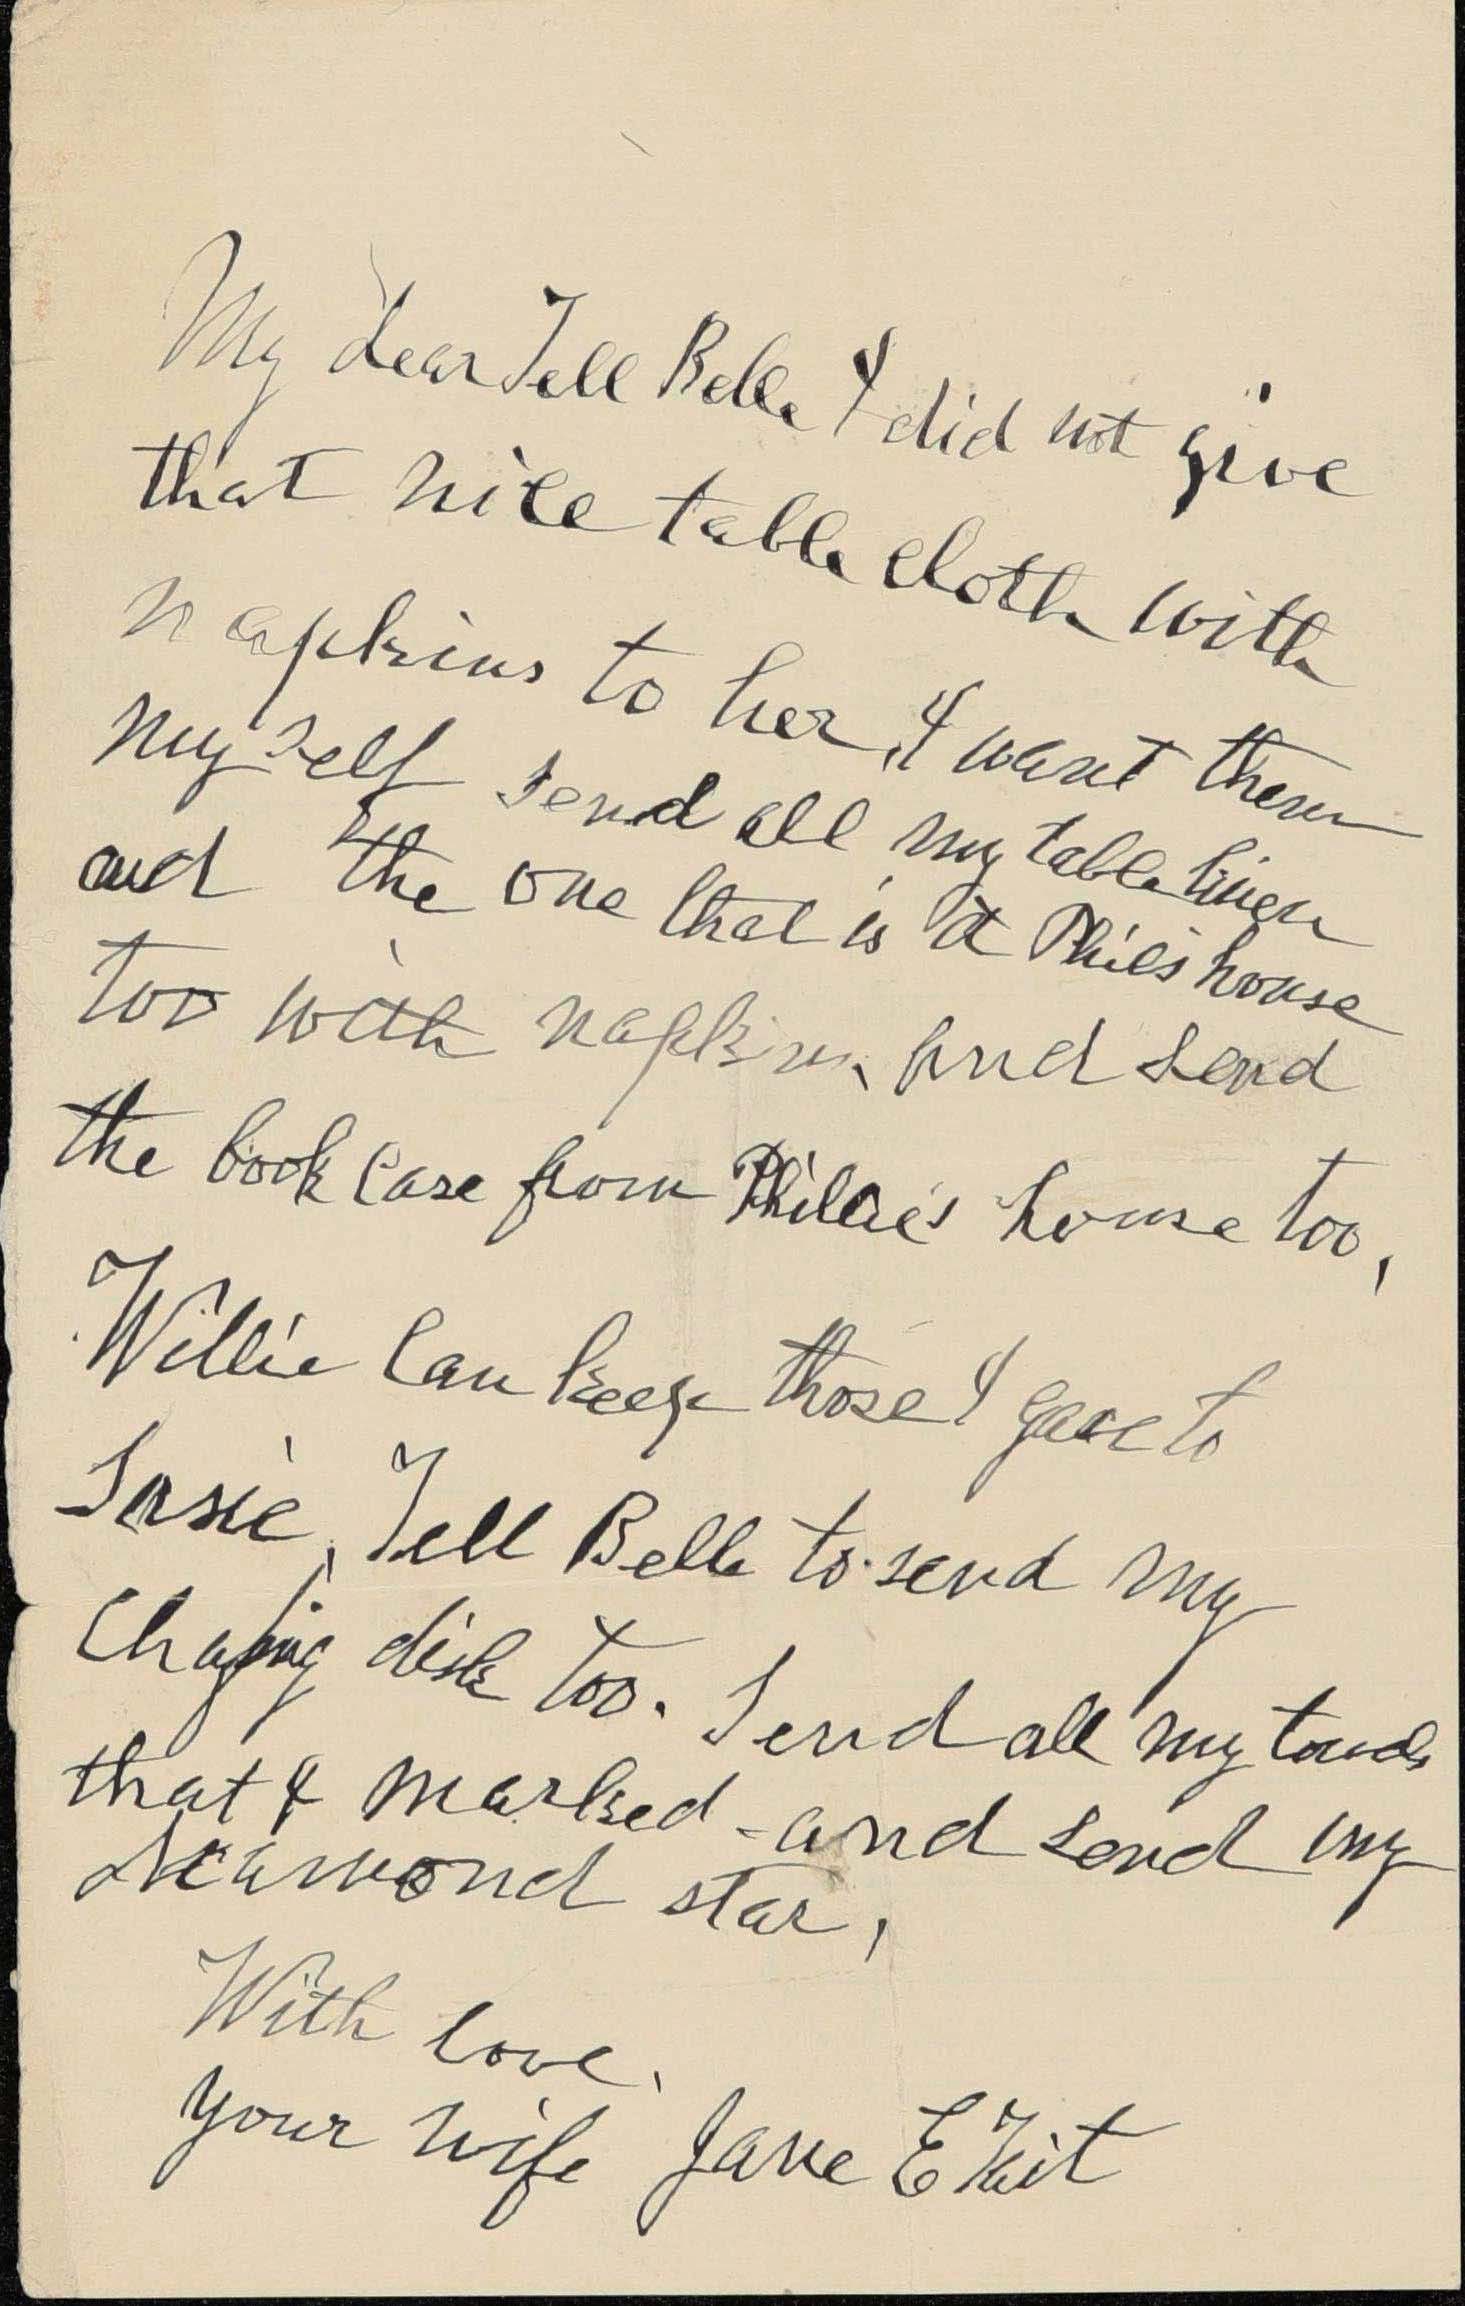 My dear Tell Belle I did not give
that nice table cloth with
napkins to her, I want them
myself send all my table linen
and the one that is at Phil's house
too with napkins, and send
the book case from Philie's house too,
Willie can keep those I gave to
Susie, Tell Belle to send my
Chafing dish too. Send all my towels
that I marked - and send my
diamond star,
With love,
your wife Jane E